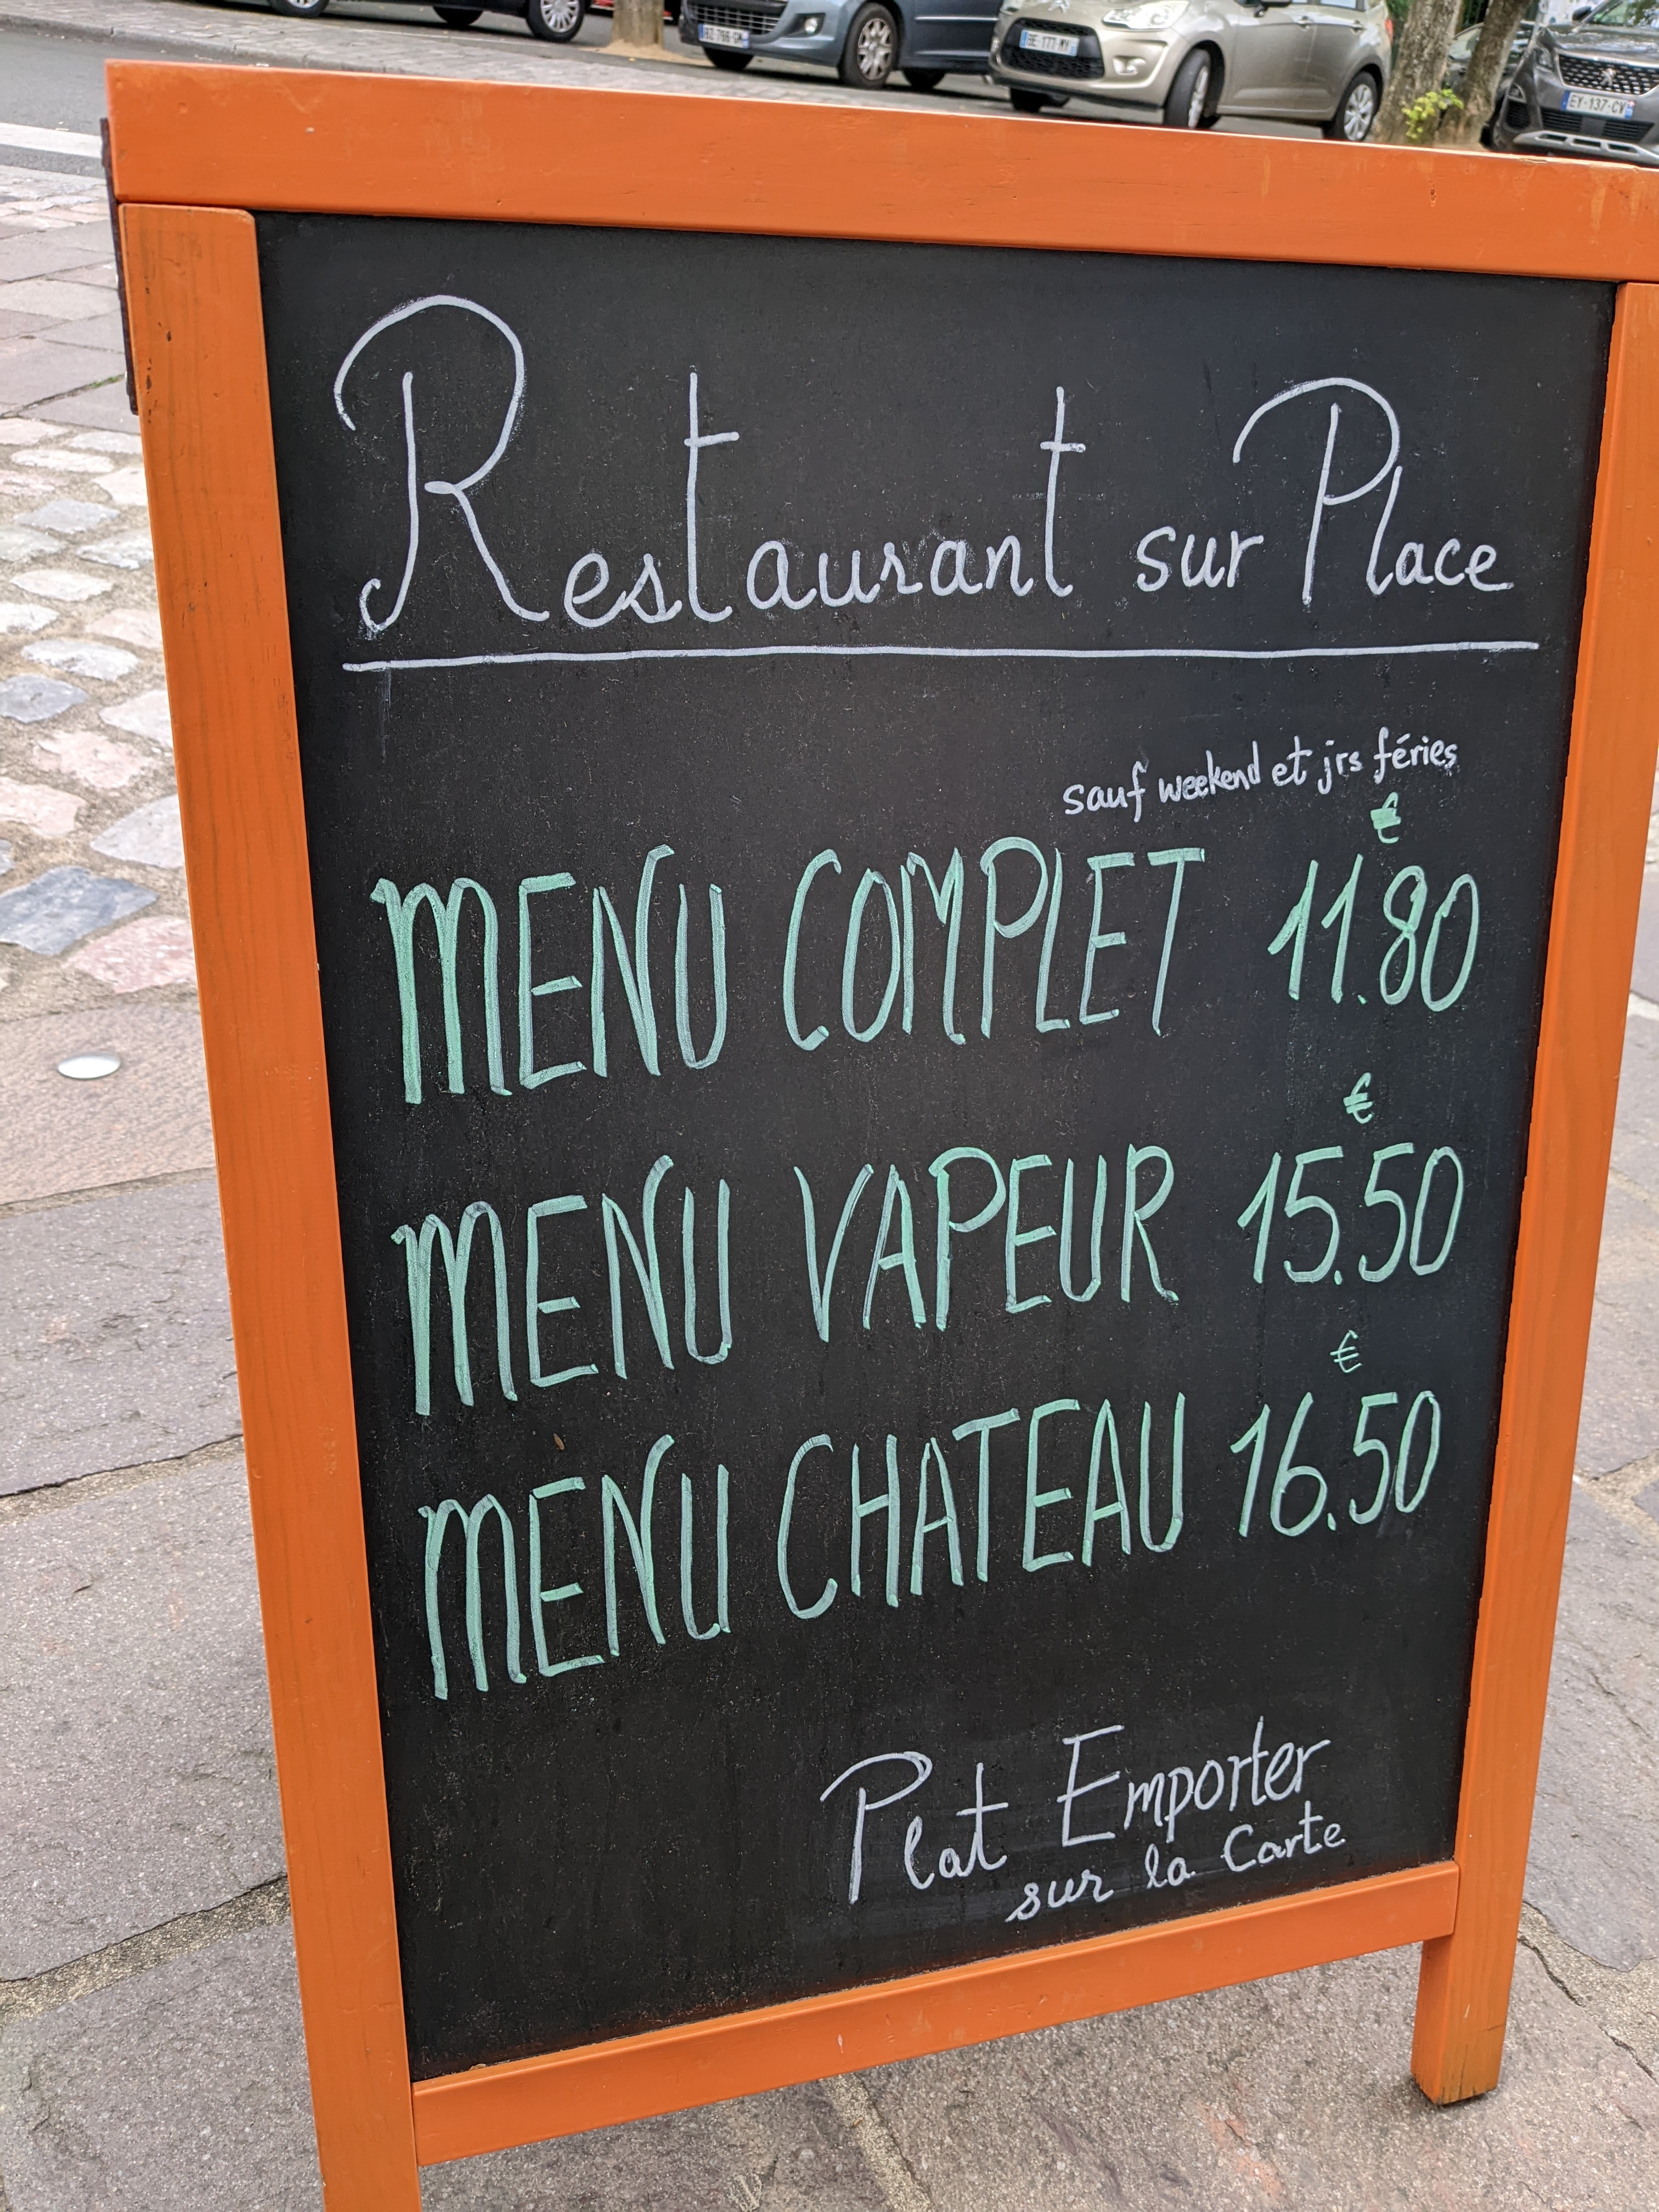 BZ-766-GM
BE-177-MY
EY-137-CV
Restaurant sur Place
sauf weekend et jrs féries
€
MENU COMPLET 11.80
€
MENU VAPEUR 15.50
€
MENU CHATEAU 16.50
Plat Emporter
sur la Carte